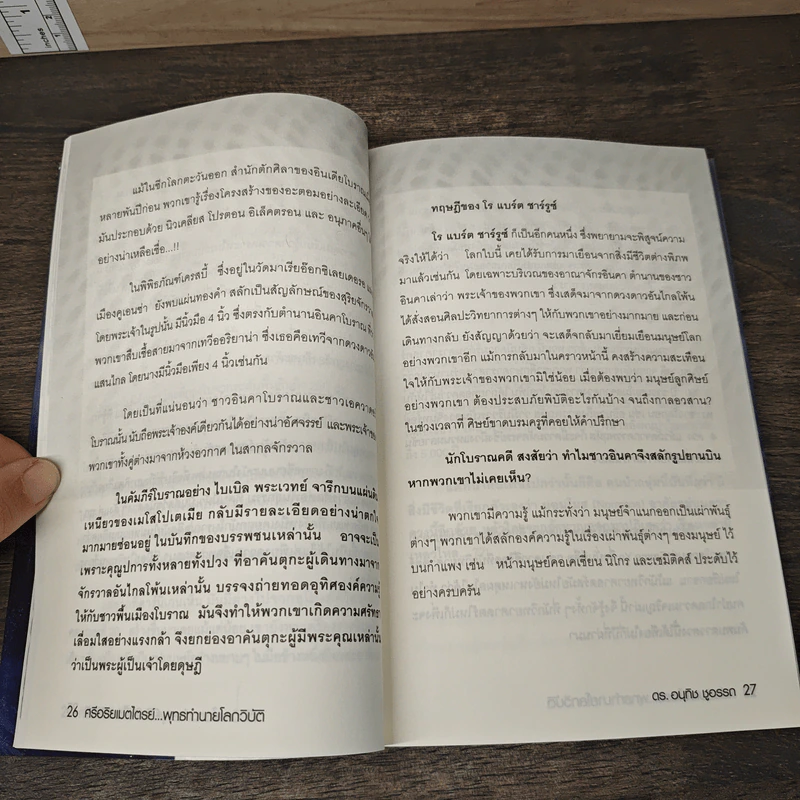 แม้ในซีกโลกตะวันออก สำนักตักศิลาของอินเดียโบราณ
หลายพันปีก่อน พวกเขารู้เรื่องโครงสร้างของอะตอมอย่างละเอียด
มันประกอบด้วย นิวเคลียส โปรตอน อิเล็คตรอน และ อนุภาคอื่นๆ
อย่างน่าเหลือเชื่อ...!!
ในพิพิธภัณฑ์เครสปี้ ซึ่งอยู่ในวัดมาเรียอ๊อกซิเลยเดอรอ
เมืองคูเอนซ่า ยังพบแผ่นทองคำ สลักเป็นสัญลักษณ์ของสุริยจักรวาล
โดยพระเจ้าในรูปนั้น มีนิ้วมือ 4 นิ้ว ซึ่งตรงกับตำนานอินคาโบราณ
พวกเขาสืบเชื้อสายมาจากเทวีออริยาน่า ซึ่งเธอคือเทวีจากดวงดาว
แสนไกล โดยนางมีนิ้วมือเพียง 4 นิ้วเช่นกัน
โดยเป็นที่แน่นอนว่า ชาวอินคาโบราณและชาวเอควาดอร์
โบราณนั้น นับถือพระเจ้าองค์เดียวกันได้อย่างน่าอัศจรรย์ และพระเจ้าของ
พวกเขาทั้งคู่ต่างมาจากห้วงอวกาศ ในสากลจักรวาล
ในคัมภีร์โบราณอย่าง ไบเบิล พระเวทย์ จารึกบนแผ่นดิน
เหนียวของเมโสโปเตเมีย กลับมีรายละเอียดอย่างน่าตกใจ
มากมายซ่อนอยู่ ในบันทึกของบรรพชนเหล่านั้น อาจจะเป็น
เพราะคุณูปการทั้งหลายทั้งปวง ที่อาคันตุกะผู้เดินทางมาจาก
จักรวาลอันไกลโพ้นเหล่านั้น บรรจงถ่ายทอดอุทิศองค์ความรู้
ให้กับชาวพื้นเมืองโบราณ มันจึงทำให้พวกเขาเกิดความศรัทธา
เลื่อมใสอย่างแรงกล้า จึงยกย่องอาคันตุกะผู้มีพระคุณเหล่านั้น
ว่าเป็นพระผู้เป็นเจ้าโดยดุษฎี
26 ศรีอริยเมตไตรย์...พุทธทำนายโลกวิบัติ
ทฤษฎีของ โร แบร์ต ชาร์รูซ์
โร แบร์ต ชาร์รูซ์ ก็เป็นอีกคนหนึ่ง ซึ่งพยายามจะพิสูจน์ความ
จริงให้ได้ว่า โลกใบนี้ เคยได้รับการมาเยือนจากสิ่งมีชีวิตต่างพิภพ
มาแล้วเช่นกัน โดยเฉพาะบริเวณของอาณาจักรอินคา ตำนานของชาว
อินคาเล่าว่า พระเจ้าของพวกเขา ซึ่งเสด็จมาจากดวงดาวอันไกลโพ้น
ได้สั่งสอนศิลปะวิทยาการต่างๆ ให้กับพวกเขาอย่างมากมาย และก่อน
เดินทางกลับ ยังสัญญาด้วยว่า จะเสด็จกลับมาเยี่ยมเยือนมนุษย์โลก
อย่างพวกเขาอีก แม้การกลับมาในคราวหน้านี้ คงสร้างความสะเทือน
ใจให้กับพระเจ้าของพวกเขามิใช่น้อย เมื่อต้องพบว่า มนุษย์ลูกศิษย์
อย่างพวกเขา ต้องประสบภัยพิบัติอะไรกันบ้าง จนถึงกาลอวสาน?
ในช่วงเวลาที่ ศิษย์ขาดบรมครูที่คอยให้คำปรึกษา
นักโบราณคดี สงสัยว่า ทำไมชาวอินคาจึงสลักรูปยานบิน
หากพวกเขาไม่เคยเห็น?
พวกเขามีความรู้ แม้กระทั่งว่า มนุษย์จำแนกออกเป็นเผ่าพันธุ์
ต่างๆ พวกเขาได้สลักองค์ความรู้ในเรื่องเผ่าพันธุ์ต่างๆ ของมนุษย์ ไว้
บนกำแพง เช่น หน้ามนุษย์คอเคเซี่ยน นิโกร และเซมิติคส์ ประดับไว้
อย่างครบครัน
ดร. อนุทิช ชูอรรถ 27